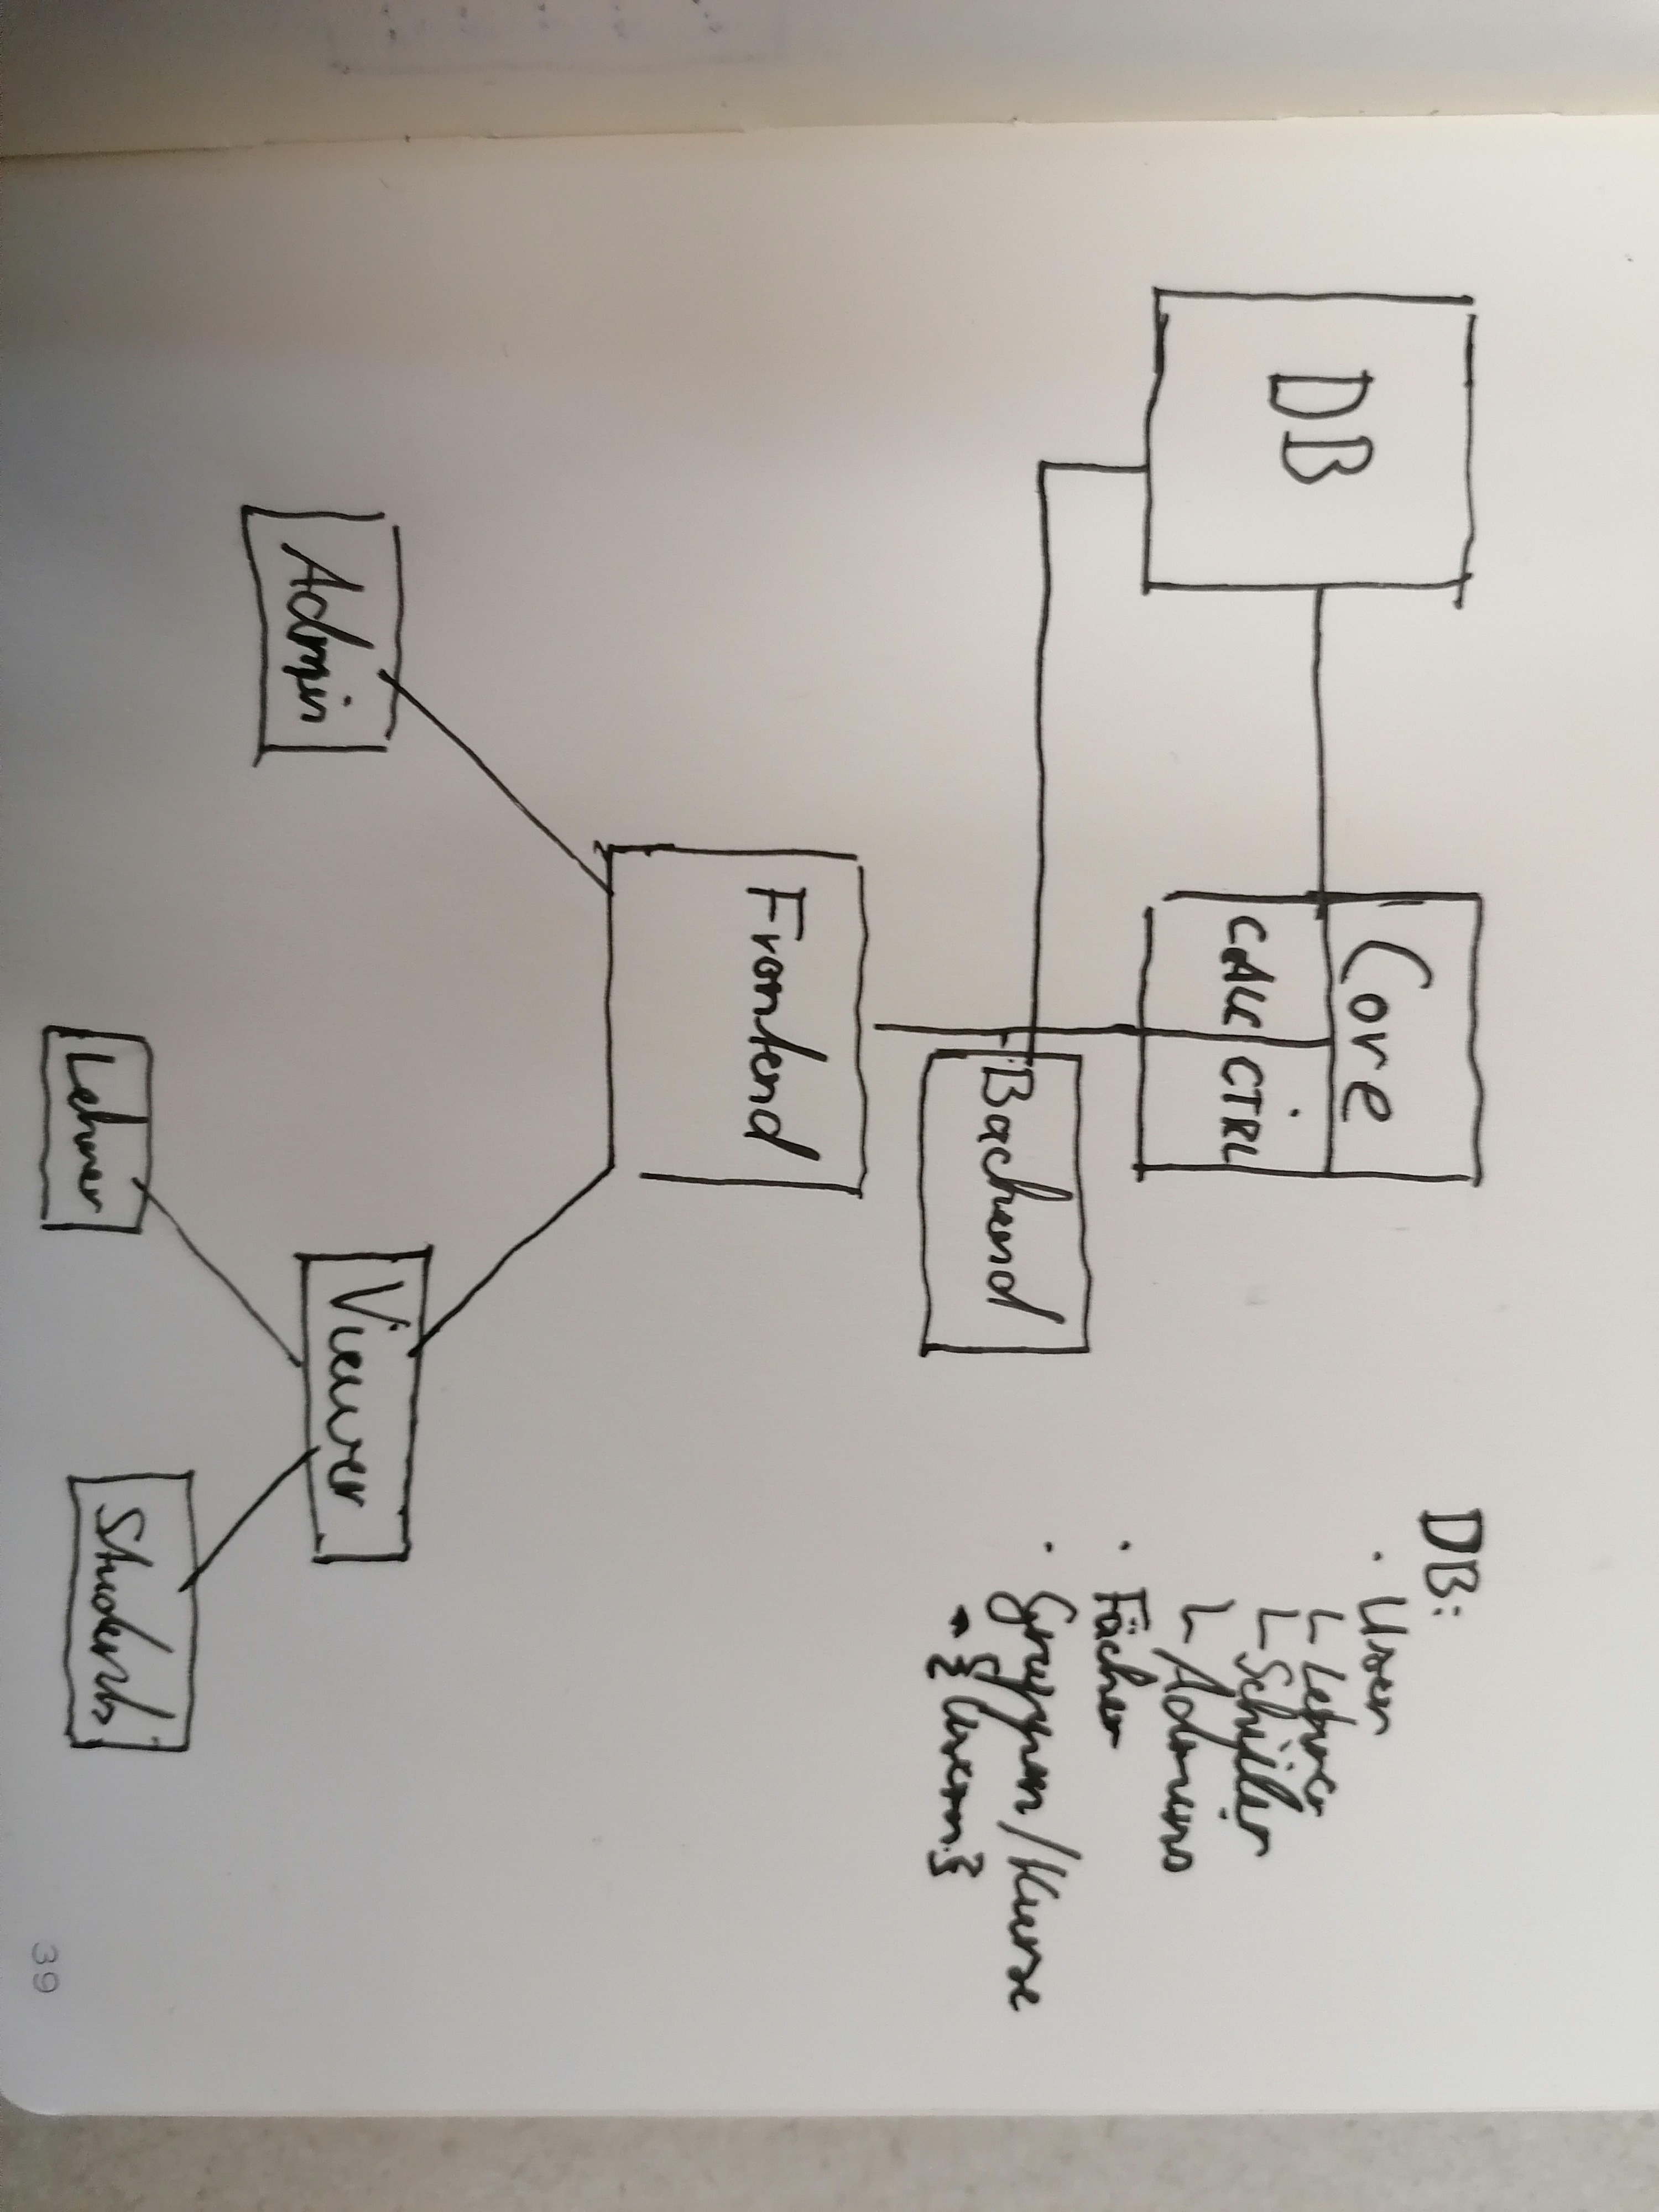 DB
Core
CALC CTRL
Backend
Frontend
Admin
Viewer
Lehrer
Students
DB:
· User
L Lehrer
L Schüler
L Admins
· Fächer
· Gruppen/Kurse
39